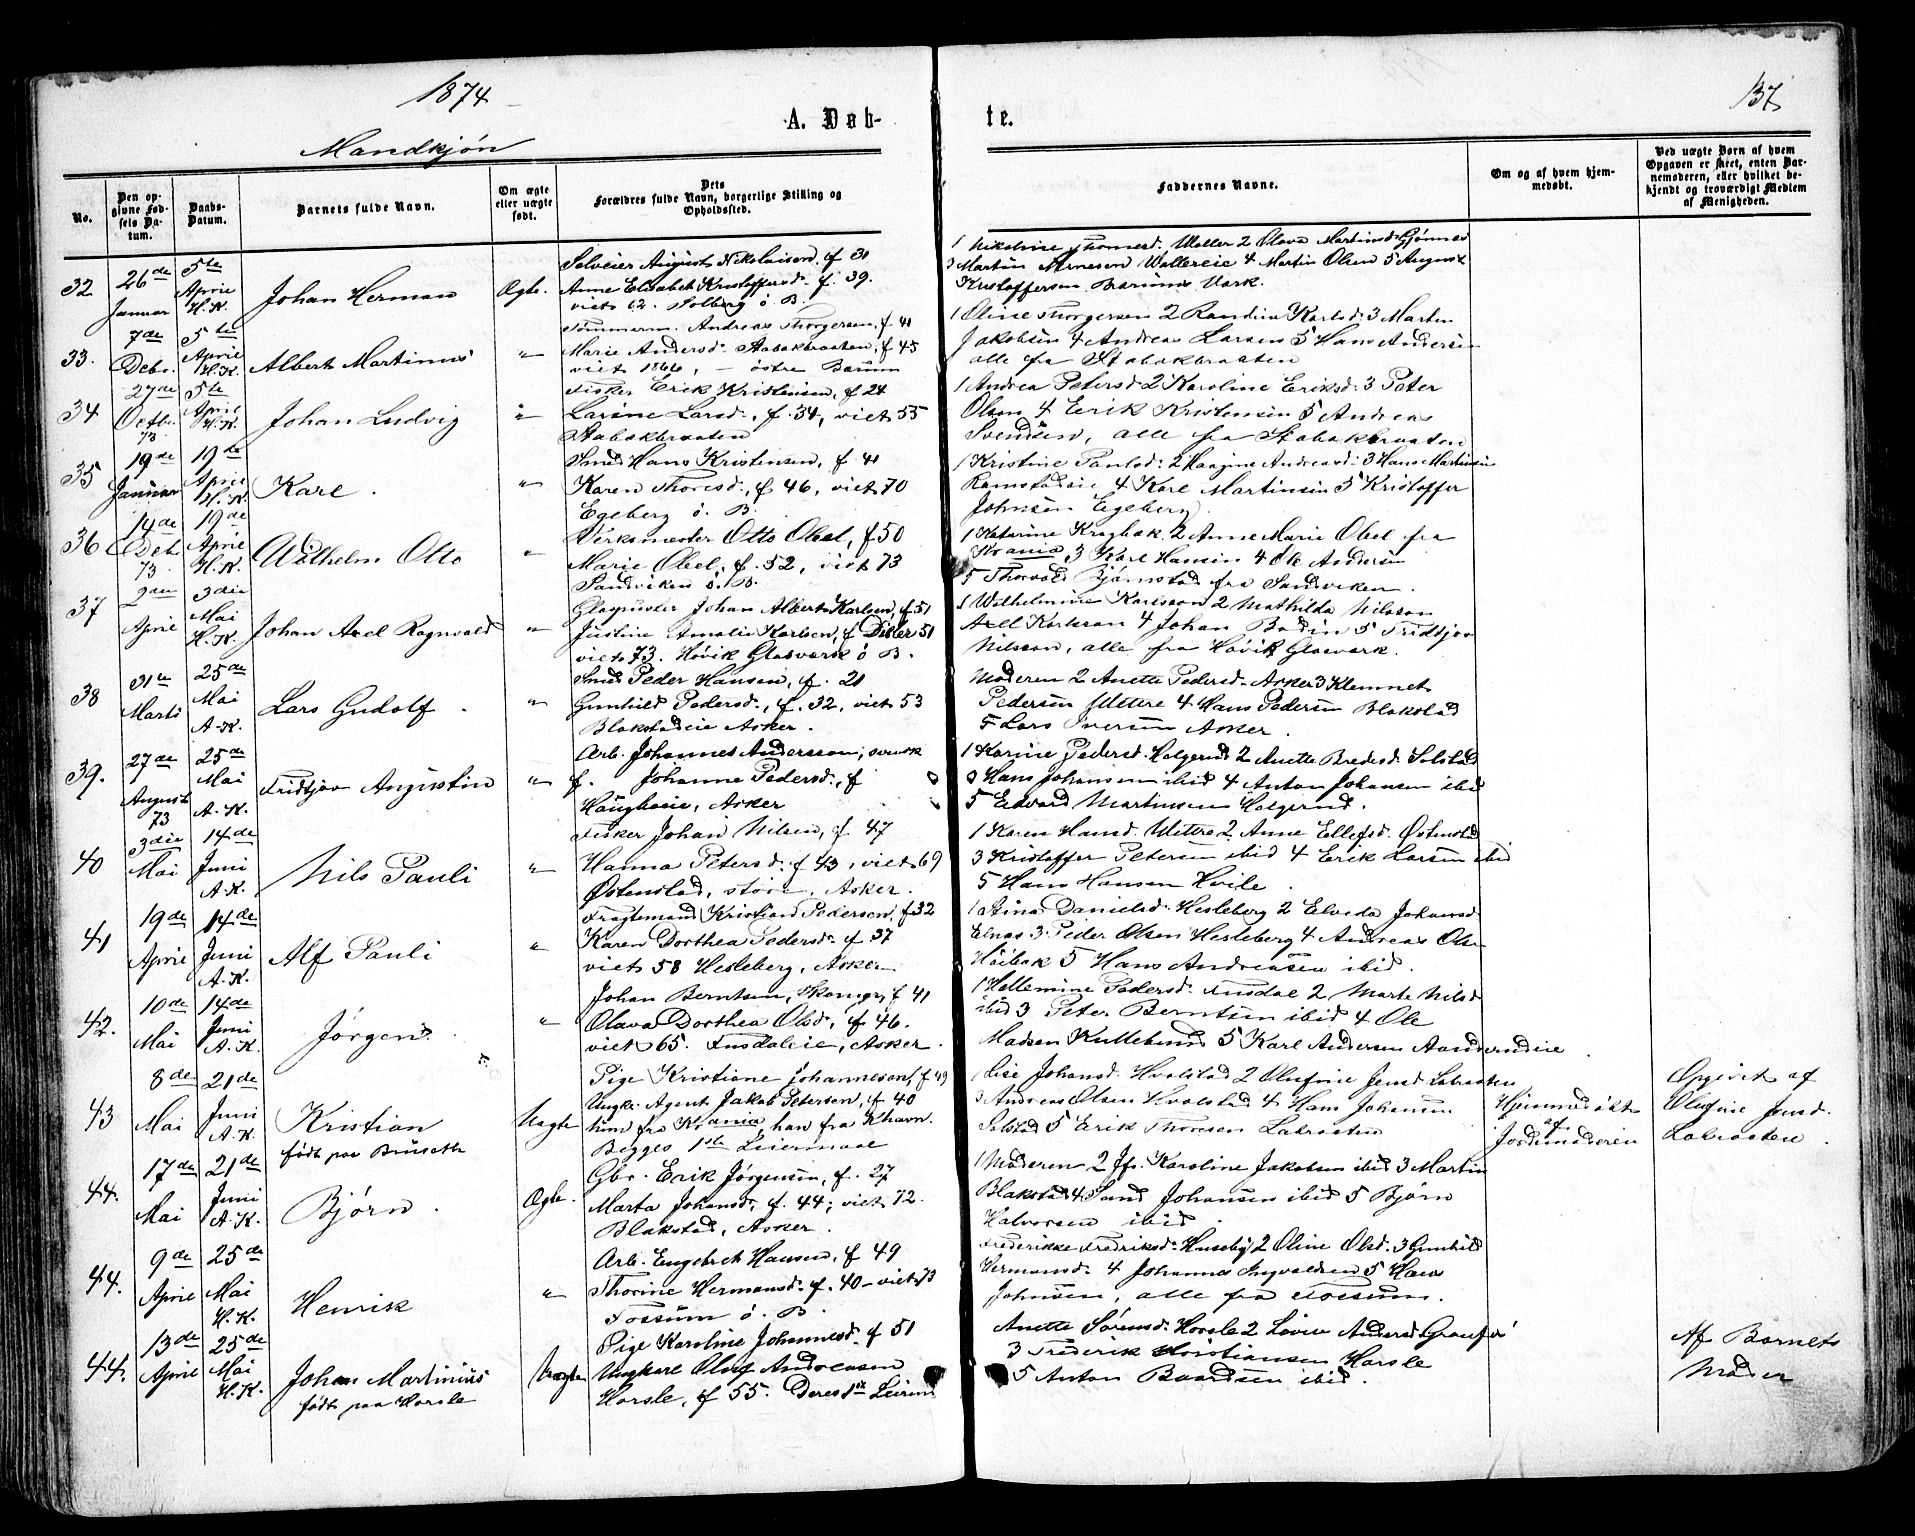 1874
137
A. Døb-
te.
Mandkjøn
No.
Den op-
givne Fød-
sels Da-
tum.
Daabs-
Datum.
Barnets fulde Navn.
Om ægte
eller uægte
født.
Dets
Forældres fulde Navn, borgerlige Stilling og
Opholdssted.
Faddernes Navne.
Om og af hvem hjem-
medøbt.
Ved uægte Børn af hvem
Opgaven er skeet, enten Bar-
nemoderen, eller hvilket be-
kjendt og troværdigt Medlem
af Menigheden.
32
26de
Januar
5te
April
H.K.
Johan Herman
Ægte.
August Nikolaisen, f 31
Anne Elisabeth Kristoffersd. f. 39.
viet 62. Solberg ö. B.
1 Nikoline Thoresd. Waller 2 Olava Martinsd.
3 Martin Arnesen Wallereie 4 Martin Olsen 5 August
Kristoffersen Bærums Værk.
33.
7de
Debr.
5te
April
H.K.
Albert Martinus
"
Tømmerm. Andreas Thorgersen, f 41
Marie Andersd. Stabækbraaten, f 45
viet 1866, - östre Bærum
1 Oline Thorgersen 2 Randine Karlsd. 3 Martin
Jakobsen 4 Andreas Larsen 5 Hans Andersen
alle fra Stabækbraaten
34
27de
Octbr.
73
5te
April
H.K.
Johan Ludvig
"
Fisker Erik Kristensen, f 24
Larine Larsd., f. 34, viet 55
Stabækbraaten
1 Andrea Petersd. 2 Karoline Eriksd. 3 Peter
Olsen 4 Erik Kristensen 5 Andreas
Svendsen, alle fra Stabækbraaten
35
19de
Januar
19de
April
H.K.
Karl.
"
Smed Hans Kristensen, f 41
Karen Thoresd., f 46, viet 70
Egeberg ö. B.
1 Kristine Paulsd. 2 Haagine Andreasd. 3 Hans Martinsen
Ramstadeie 4 Karl Martinsen 5 Kristoffer
Johnsen Egeberg.
36
14de
Debr.
73.
19de
April
H.K.
Wilhelm Otto
"
Verksmester Otto Obel, f 50
Marie Obel, f. 52, viet 73
Sandviken ö. B.
1 Katarine Kragbæk 2 Anne Marie Obel fra
Krania, 3 Karl Hansen 4 Ole Andersen
5 Thorvald Bjørnstad fra Sandviken.
37
2den
April
3die
Mai
H.K.
Johan Axel Ragnvald
"
Glaspuster Johan Albert Karlsen, f 51
Justine Amalie Karlsen, f. Disler 51
viet 73. Høvik Glasværk ö B.
1 Wilhelmine Karlsson 2 Mathilda Nilsson
Axel Karlsson 4 Johan Bodin 5 Fridtjov
Nilsson, alle fra Høvik Glasværk.
38
31te
Marts
25de
Mai
A.K.
Lars Gudolf.
"
Smed Peder Hansen, f. 21
Gunhild Pedersd., f. 32, viet 53
Blakstadeie Asker.
Moderen 2 Anette Pedersd. Asker 3 Klemmet
Pedersen Uttere 4 Hans Pedersen Blakstad
5 Lars Iversen Asker.
39.
27de
August
73
25de
Mai
A.K.
Fridtjov Augustin
"
Arb. Johannes Andersson, svensk
f. Johanne Pedersd., f
Haugboeie, Asker
1 Karine Pedersd. Holgerud 2 Anette Bredesd. Solstad
3 Hans Johansen ibid 4 Anton Johansen ibid
5 Edvard Martinsen Holgerud.
40
3die
Mai
14de
Juni
A.K.
Nils Pauli
"
Fisker Johan Nilsen, f. 47
Hanna Petersd. f 43, viet 69
Østenstad, store, Asker.
1 Karen Hansd. Uttere 2 Anne Ellefsd. Østenstad
3 Kristoffer Petersen ibid 4 Erik Larsen ibid
5 Hans Hansen Hvile.
41
19de
April
14de
Juni
A.K.
Alf Pauli
"
Fragtemand Kristian Pedersen, f 32
Karen Dorthea Pedersd. f 37
viet 58 Hesleberg, Asker
1 Stina Danielsd. Hesleberg 2 Elveda Johansd.
Elnæs 3 Peder Olsen Hesleberg 4 Andreas Ols.
Høibak 5 Hans Andreasen ibid.
42.
10de
Mai
14de
Juni
A.K.
Jørgen.
"
Johan Berntsen, Skomgr, f 41
Olava Dorthea Olsd., f 46.
viet 65. Fusdaleie, Asker.
1 Hellemine Pedersd. Fusdal 2 Marte Nilsd
ibid 3 Peter Berntsen ibid 4 Ole
Madsen Kullebund 5 Karl Andersen Aanderudeie.
43
8de
Mai
21de
Juni
A.K.
Kristian
født paa Brüsæth
Uægte
Pige Kristiane Johannesen, f 49
Ungk. Agent Jakob Petersen, f 40
hun fra Krania, han fra Khavn.
Begges 1ste Leiermaal
Lise Johansd. Hvalstad 2 Olufine Jensd Labraaten
3 Andreas Olsen Hvalstad 4 Hans Johansen
Solstad 5 Erik Thoresen Labraaten
Hjemmedøbt
af
Jordemoderen
Opgivet af
Olufine Jensd.
Labraaten.
44.
17de
Mai
21de
Juni
A.K.
Bjørn.
Ægte.
Gbr. Erik Jørgensen, f. 27
Marta Johansd., f. 44; viet 72.
Blakstad, Asker.
1 Moderen 2 Jfr. Karoline Jakobsen ibid 3 Martin
Blakstad 4 Johansen ibid 5 Bjørn
Halvorsen ibid.
44.
9de
April
25de
Mai
H.K.
Henrik
"
Arb. Engebret Hansen, f 49
Thorine Hermansd. f. 40 - viet 73
Fossum ö. B.
Frederikke Fredriksd. Huseby 2 Oline Olsd. 3 Gunhild
Hermansd. 4 Johannes Ingvaldsen 5 Hans
Johnsen, alle fra Fossum.
44.
13de
April
25de
Mai
H.K.
Johan Martinius
født paa Horsle
Uægte
Pige Karoline Johannesd. f 51
Ungkarl Oluf Andreasen
Horsle, f 55. Deres 1ste Leierm
Anette Sørensd. Horsle 2 Lovise Andersd
3 Frederik Kristiansen Horsle
5 Anton Baardsen ibid.
Af Barnets
Moder